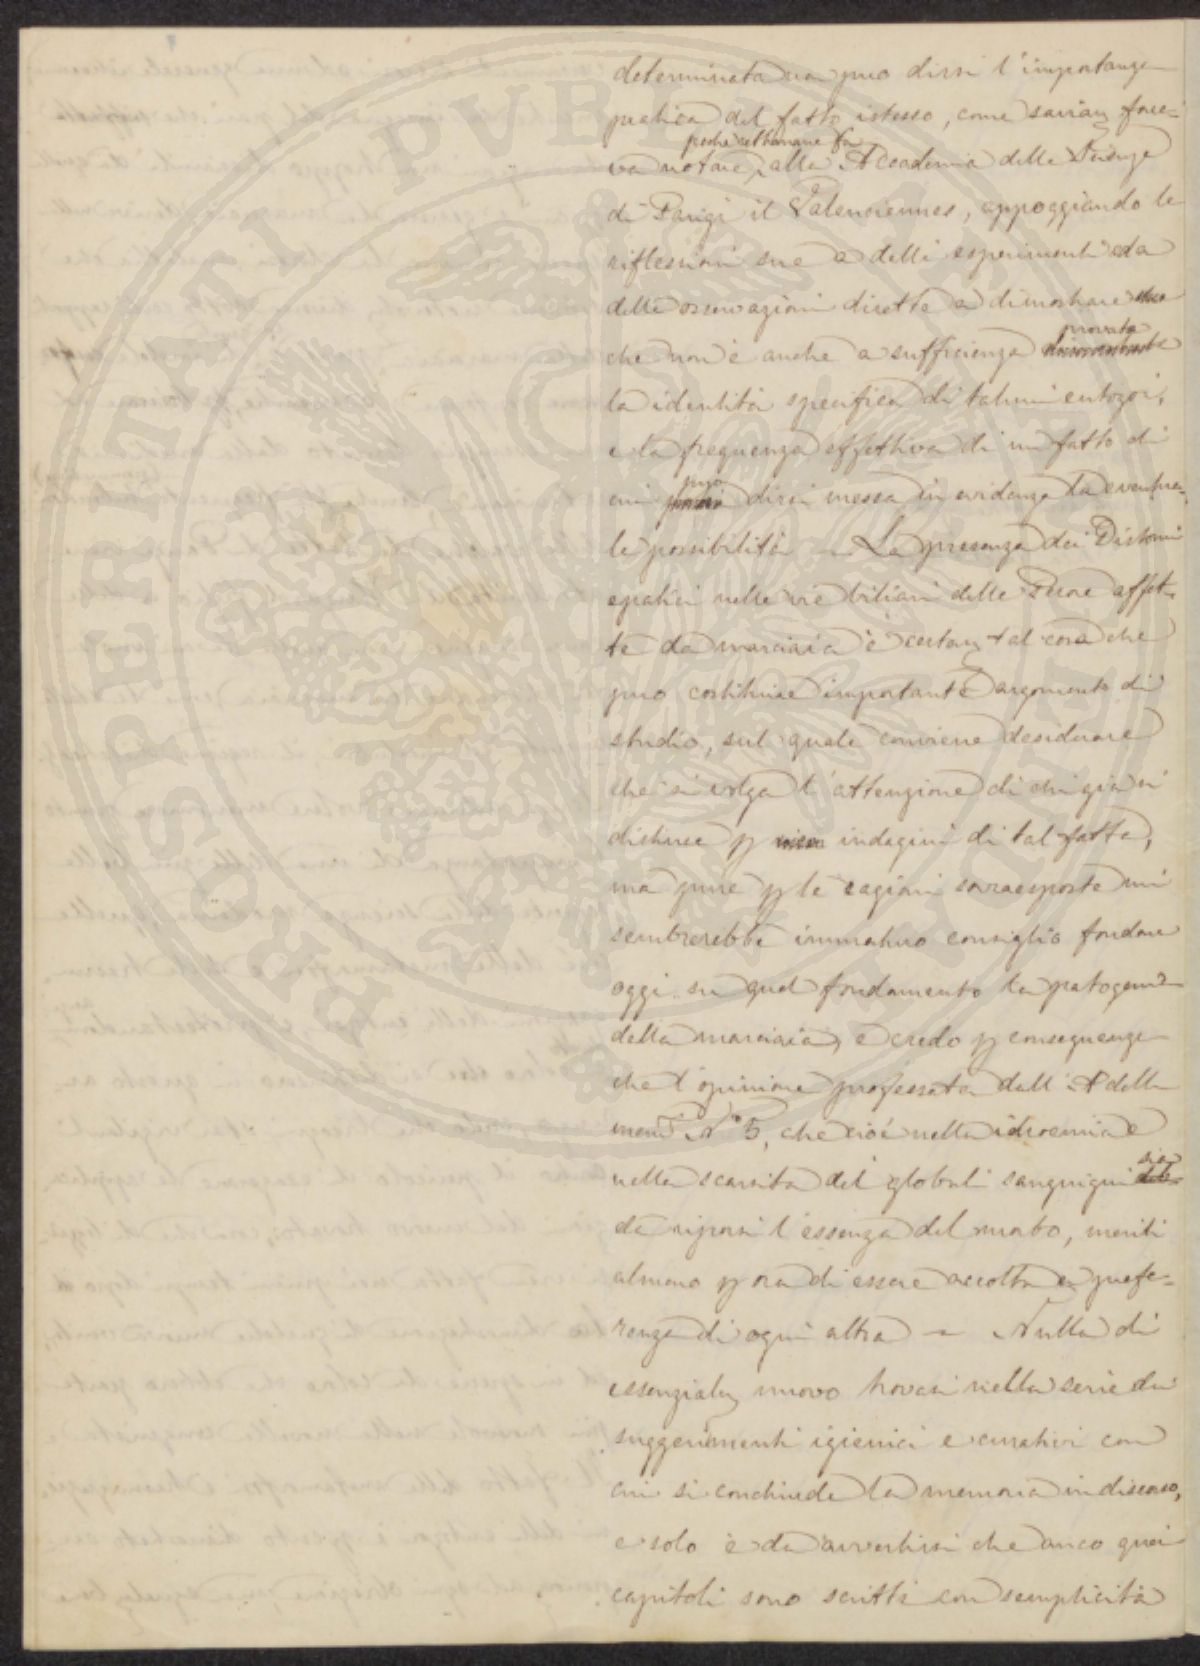 determinata non può dirsi l'importanza
pratica del fatto istesso, come saviam face-
va notare, poche settimane fa alla Accademia delle Scienze
di Parigi il Valenciennes, appoggiando le
riflessioni sue a delli esperimenti ed a
delle osservazioni dirette a dimostrare
che non è anche a sufficienza provata
la identità specifica di talmi entozoi,
e la frequenza effettiva di un fatto di
cui può dirsi messa in evidenza la eventua-
le possibilità — La presenza dei Distomi
epatici nelle vie biliari delle Pecore affet-
te da marciaia è certam tal cosa che
può costituire importante argomento di
studio, sul quale conviene desiderare
che si volga l'attenzione di chi già si
distinse p indagini di tal fatta,
ma pure p le ragioni sovraesposte mi
sembrerebbe immaturo consiglio fondare
oggi su quel fondamento la patogenia
della marciaia, e credo p conseguenza
che l'opinione professata dall'A della
mem N° 5, che cioè nella idroemia e
nella scarsità dei globuli sanguigni sia
da riporsi l'essenza del morbo, meriti
almeno p ora di essere accolta a prefe-
renza di ogni altra — Nulla di
essenzialm nuovo trovasi nella serie dei
suggerimenti igienici e curativi con
cui si conchiude la memoria in discorso,
e solo è da avvertirsi che anco quei
capitoli sono scritti con semplicità
PROSPERITATI PUBLICAE